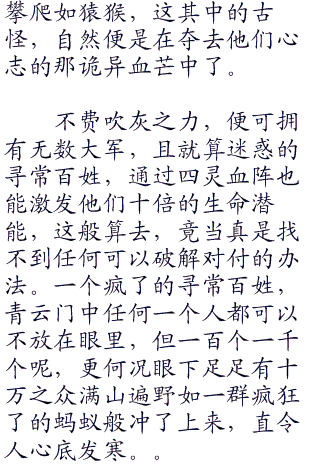 攀爬如猿猴，这其中的古
怪，自然便是在夺去他们心
志的那诡异血芒中了。
不费吹灰之力，便可拥
有无数大军，且就算迷惑的
寻常百姓，通过四灵血阵也
能激发他们十倍的生命潜
能，这般算去，竟当真是找
不到任何可以破解对付的办
法。一个疯了的寻常百姓，
青云门中任何一个人都可以
不放在眼里，但一百个一千
个呢，更何况眼下足足有十
万之众满山遍野如一群疯狂
了的蚂蚁般冲了上来，直令
人心底发寒。。